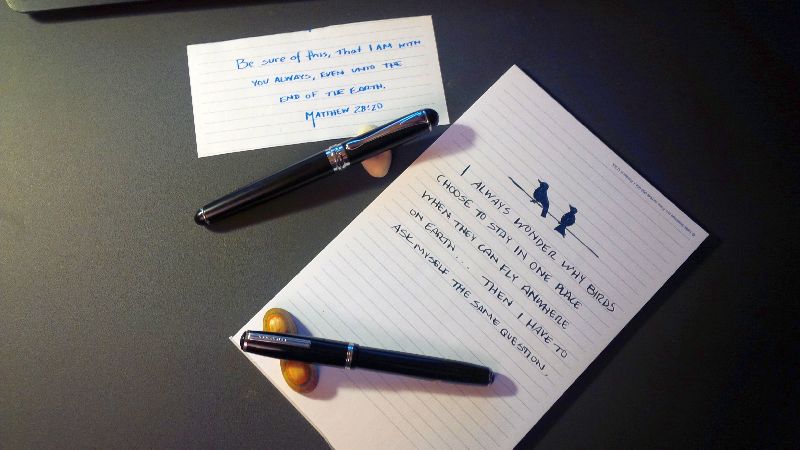 Be sure of this, that I AM WITH
YOU ALWAYS, EVEN UNTO THE
END OF THE EARTH.
MATTHEW 28:20
I ALWAYS WONDER WHY BIRDS
CHOOSE TO STAY IN ONE PLACE
WHEN THEY CAN FLY ANYWHERE
ON EARTH... THEN I HAVE TO
ASK MYSELF THE SAME QUESTION.